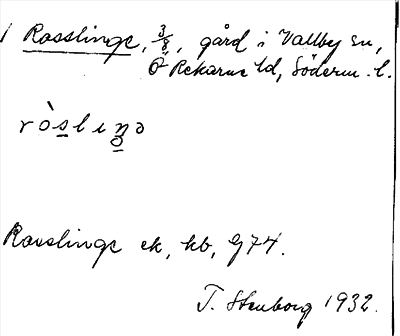 1 Rosslinge, 3/8, gård i Vallby sn,
Ö Rekarne hd, Söderm. l.
ròslıŋə
Rosslinge ek, kb, G74.
T. Stenborg 1932.